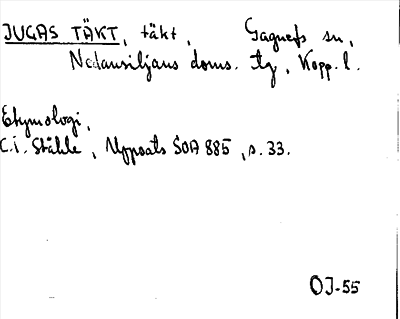 JUGAS TÄKT, täkt, Gagnefs sn,
Nedansiljans doms. tg, Kopp. l.
Etymologi,
C.I. Ståhle, Uppsats SOA 885, s. 33.
OJ-55